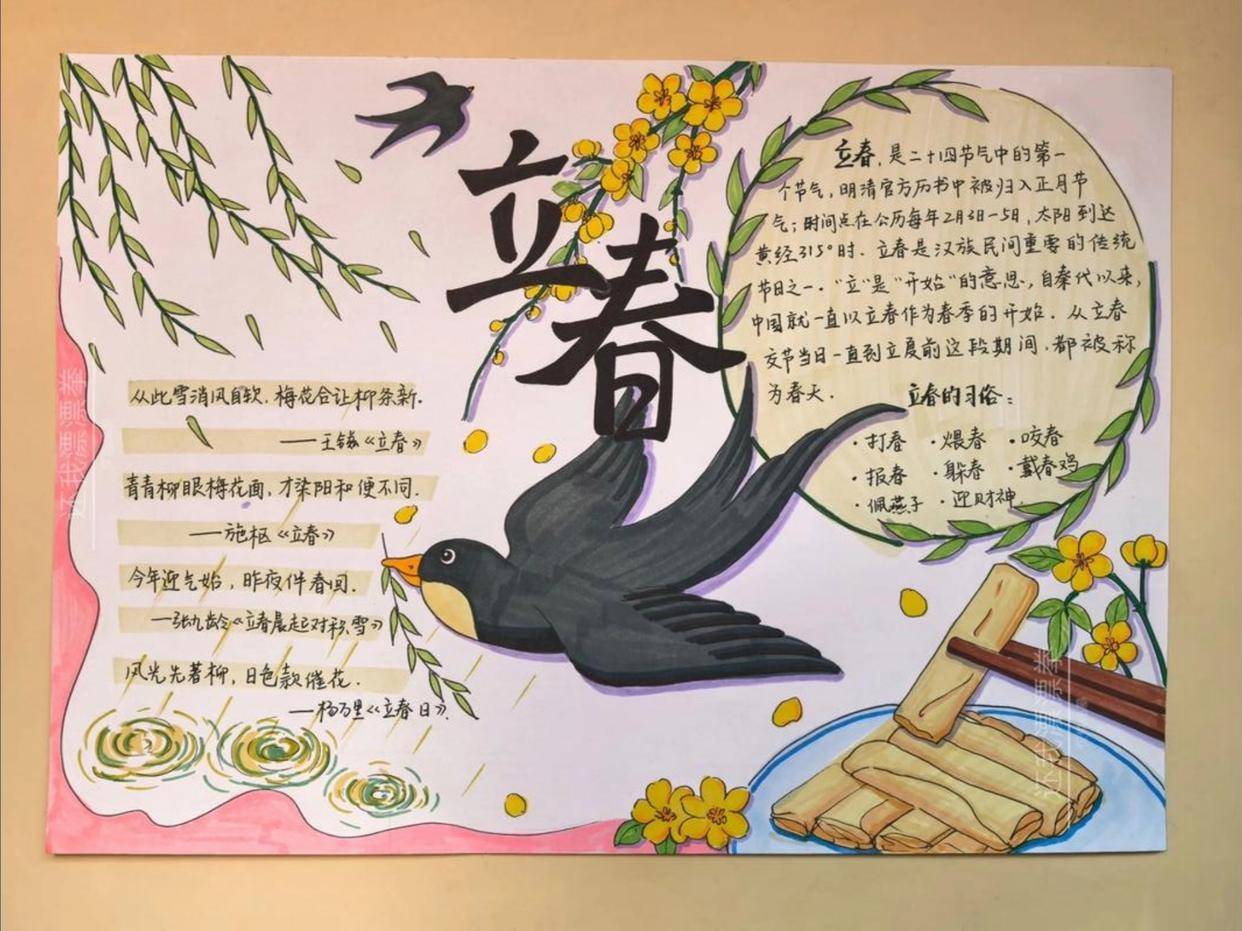 立春
从此雪消风自软，梅花合让柳条新.
——王镃《立春》
青青柳眼梅花面，才染阳和便不同.
——施枢《立春》
今年迎气始，昨夜伴春回.
——张九龄《立春晨起对积雪》
风光先著柳，日色款催花.
——杨万里《立春日》.
立春，是二十四节气中的第一
个节气，明清官方历书中被归入正月节
气；时间点在公历每年2月3日-5日，太阳到达
黄经315°时. 立春是汉族民间重要的传统
节日之一. “立”是“开始”的意思，自秦代以来，
中国就一直以立春作为春季的开始. 从立春
交节当日一直到立夏前这段期间，都被称
为春天.
立春的习俗：
·打春 ·煨春 ·咬春
·报春 ·躲春 ·戴春鸡
·佩燕子 ·迎财神.